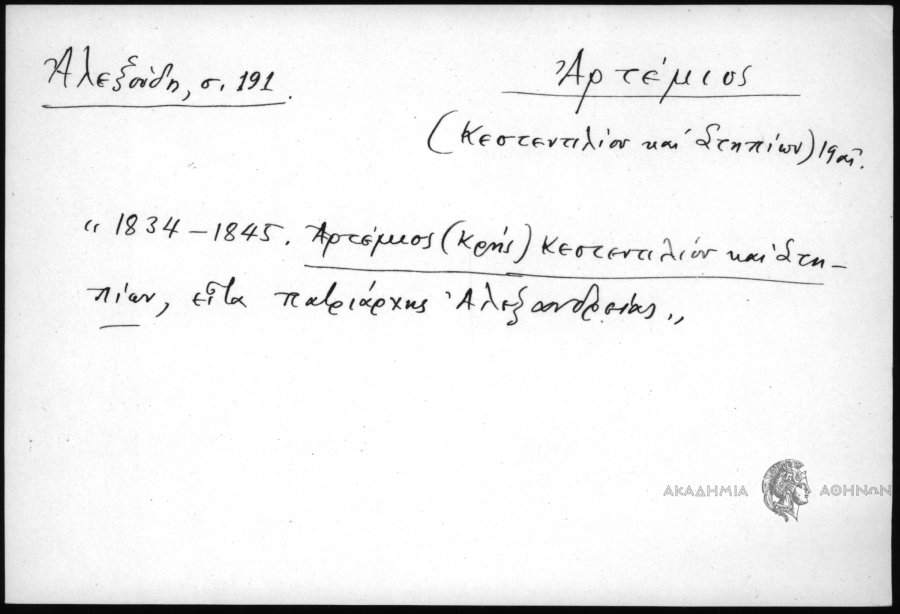 Ἀλεξούδη, σ. 191.
Ἀρτέμιος
(Κεστεντιλίου καὶ Στηπίων) 19 αἰ.
“ 1834 – 1845. Ἀρτέμιος (Κρής) Κεστεντιλίου καὶ Στη-
πίων, εἶτα πατριάρχης Ἀλεξανδρείας.„
ΑΚΑΔΗΜΙΑ ΑΘΗΝΩΝ